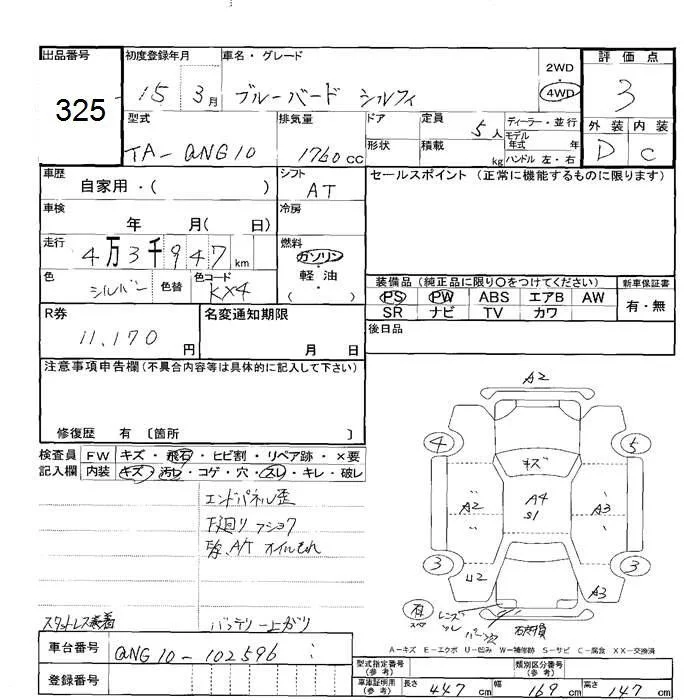 出品番号
325
初度登録年月
15 3月
車名・グレード
ブルーバード シルフィ
2WD
4WD
評価点
3
外装 内装
D C
型式
TA-QNG10
排気量
1760 CC
ドア
形状
定員
5人
積載
kg
ディーラー・並行
モデル
年式 年
ハンドル 左・右
車歴
自家用・( )
シフト
AT
セールスポイント (正常に機能するものに限ります)
車検
年 月( 日)
冷房
走行
4万3千947km
燃料
ガソリン
軽油
( )
色
シルバー
色替
色コード
KX4
装備品 (純正品に限り〇をつけてください)
PS PW ABS エアB AW
SR ナビ TV カワ
新車保証書
有・無
R券
11,170円
名変通知期限
月 日
後日品
注意事項申告欄(不具合内容等は具体的に記入して下さい)
修復歴 有 〔箇所 〕
検査員
記入欄
FW キズ・飛石・ヒビ割・リペア跡・×要
内装 キズ・汚レ・コゲ・穴・スレ・キレ・破レ
エンドパネル歪
下廻り
A/T オイルもれ
スタットレス装着
バッテリー上がり
A2
4
5
キズ
A2
A4
S1
A3
3
3
U2
A3
A-キズ E-エクボ U-凹み W-補修跡 S-サビ C-腐食 XX-交換済
車台番号
QNG10-102596
登録番号
型式指定番号
(参考)
類別区分番号
(参考)
車庫証明用
(参考)
長さ 447cm 幅 169cm 高さ 147cm